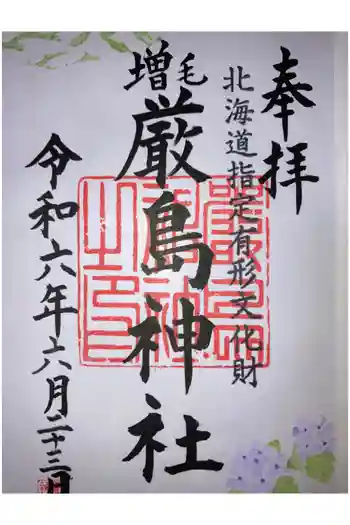 奉拝
北海道指定有形文化財
増毛
厳島神社
令和六年六月二十三日